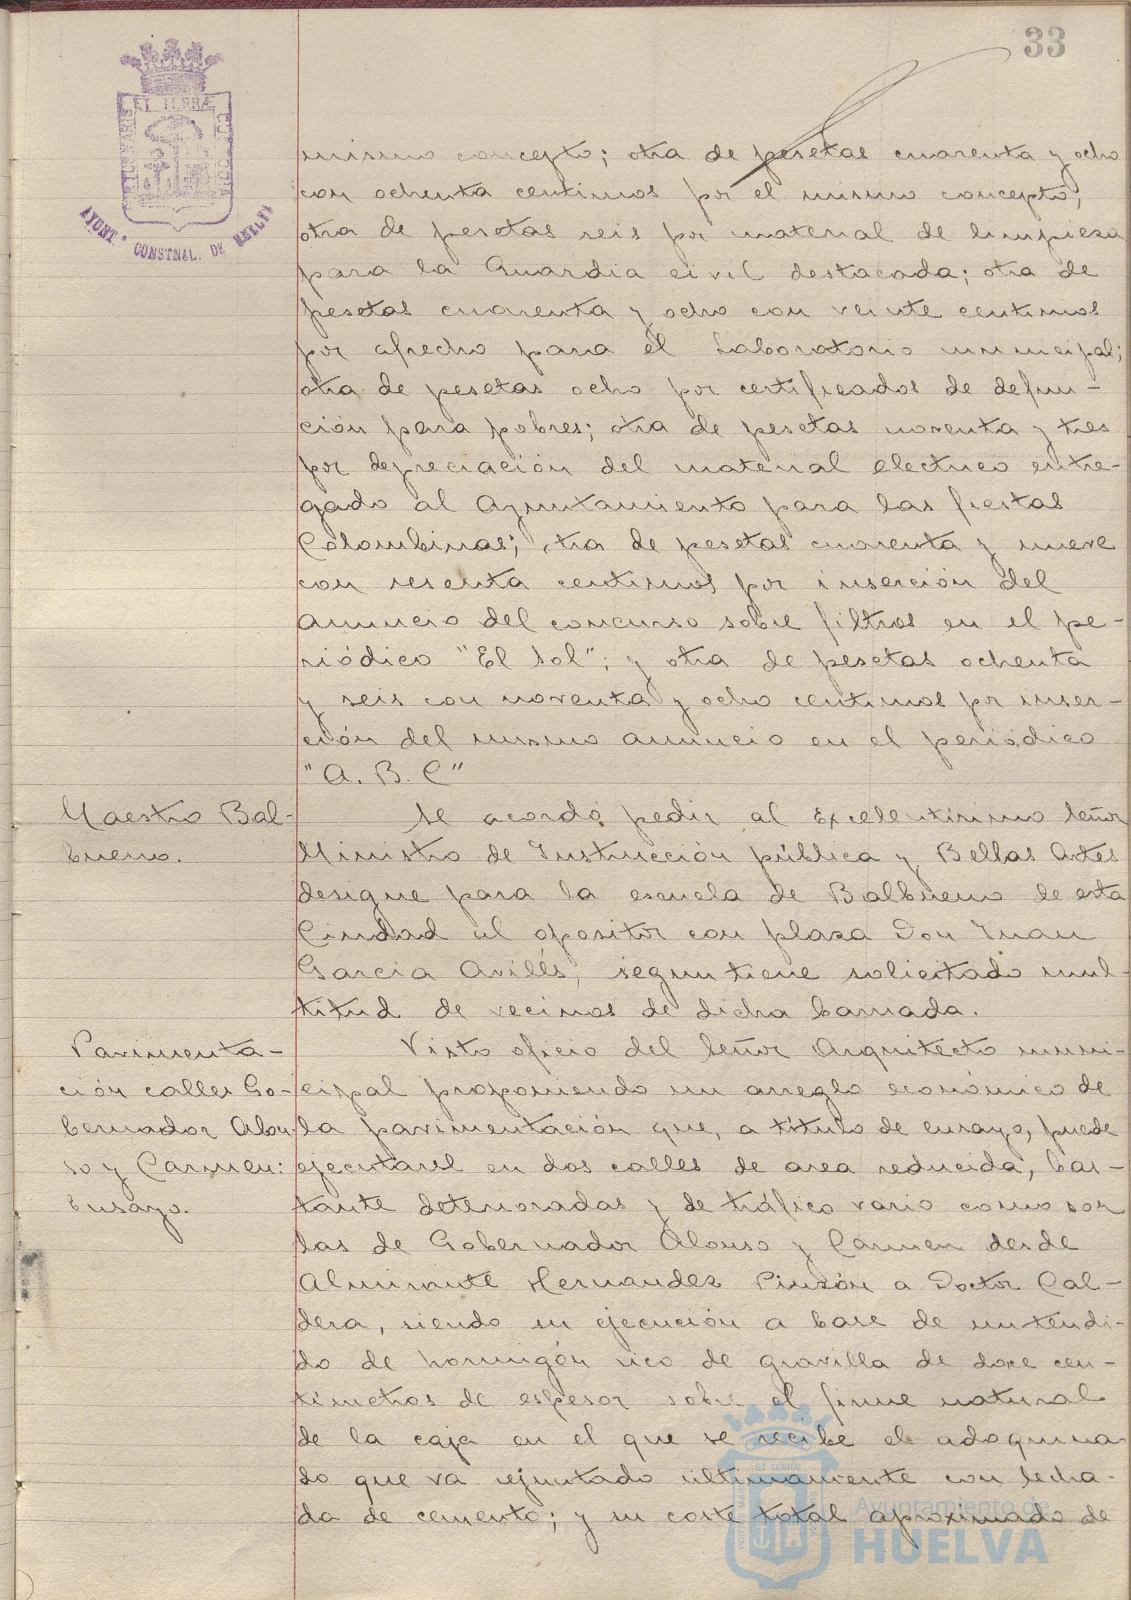 33
PORTUS MARIS
ET TERRÆ
CUSTODIA
AYUNT.º CONSTNAL. DE HUELVA
mismo concepto; otra de pesetas cuarenta y ocho
con ochenta centimos por el mismo concepto;
otra de pesetas seis por material de limpieza
para la Guardia civil destacada; otra de
pesetas cuarenta y ocho con veinte centimos
por afrecho para el Laboratorio municipal;
otra de pesetas ocho por certificados de defun-
ción para pobres; otra de pesetas noventa y tres
por depreciación del material electrico entre-
gado al Ayuntamiento para las fiestas
Colombinas; otra de pesetas cuarenta y nueve
con sesenta centimos por inserción del
anuncio del concurso sobre filtros en el pe-
riódico "El Sol"; y otra de pesetas ochenta
y seis con noventa y ocho centimos por inser-
ción del mismo anuncio en el periodico
"A. B. C"
Maestro Bal-
bueno.
Se acordó pedir al Excelentisimo Señor
Ministro de Instrucción pública y Bellas Artes
designe para la escuela de Balbueno de esta
Ciudad al opositor con plaza Don Juan
Garcia Avilés, segun tiene solicitado mul-
titud de vecinos de dicha barriada.
Pavimenta-
ción calles Go-
bernador Alon-
so y Carmen:
Ensayo.
Visto oficio del Señor Arquitecto muni-
cipal proponiendo un arreglo económico de
la pavimentación que, a titulo de ensayo, puede
ejecutarse en dos calles de area reducida, bas-
tante deterioradas y de tráfico vario como son
las de Gobernador Alonso y Carmen desde
Almirante Hernandez Pinzón a Doctor Cal-
dera, siendo su ejecución a base de un tendi-
do de hormigón rico de gravilla de doce cen-
timetros de espesor sobre el firme natural
de la caja en el que se recibe el adoquina-
do que va rejuntado ultimamente con lecha-
da de cemento; y su coste total aproximado de
Ayuntamiento de
HUELVA